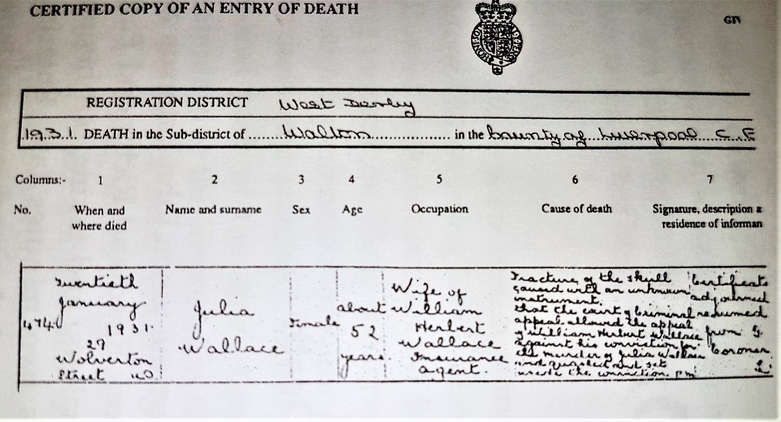 CERTIFIED COPY OF AN ENTRY OF DEATH
REGISTRATION DISTRICT West Derby
1931. DEATH in the Sub-district of Walton in the County of Liverpool C.
Columns:- 1 2 3 4 5 6 7
No. When and where died Name and surname Sex Age Occupation Cause of death Signature, description residence of
Twentieth
January
1931.
29
Wolverton
Street
Julia
Wallace
Female
about
52
years
Wife of
William
Herbert
Wallace
Insurance
agent.
Fracture of the skull
caused with an unknown
instrument.
that the court of criminal
appeal allowed the appeal
of William Herbert Wallace
against his conviction for
the murder of Julia Wallace
and quashed and set
aside the conviction. pm
Certificate
adjourned
resumed
from
Coroner